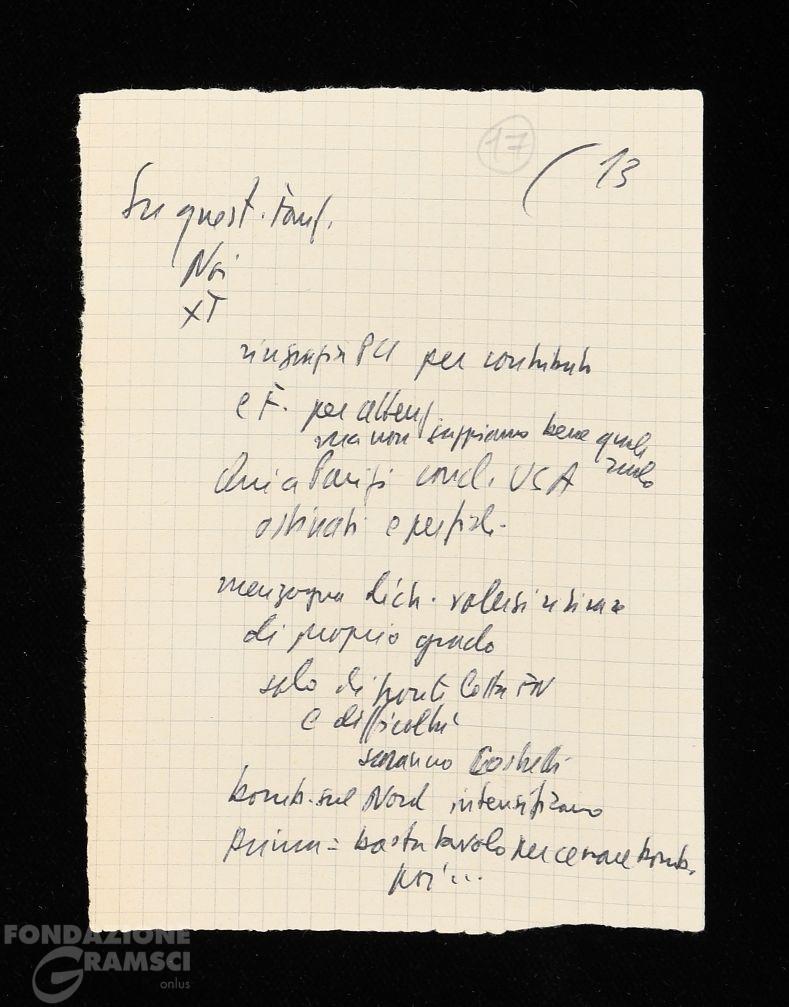 17
( 13
Su quest. Fanf.
Noi
XT
ringrazia PCI per contributi
e F. per attenz.
ma non sappiamo bene quale
ruolo
Qui a Parigi cond. USA
ostinati e perfidi.
menzogna dich. volersi ritirare
di proprio grado
solo di fronte lotta FN
e difficoltà
saranno costretti
bomb. sul Nord intensificano
Prima = basta tavolo per cessare bomb.
poi ...
FONDAZIONE
GRAMSCI
onlus